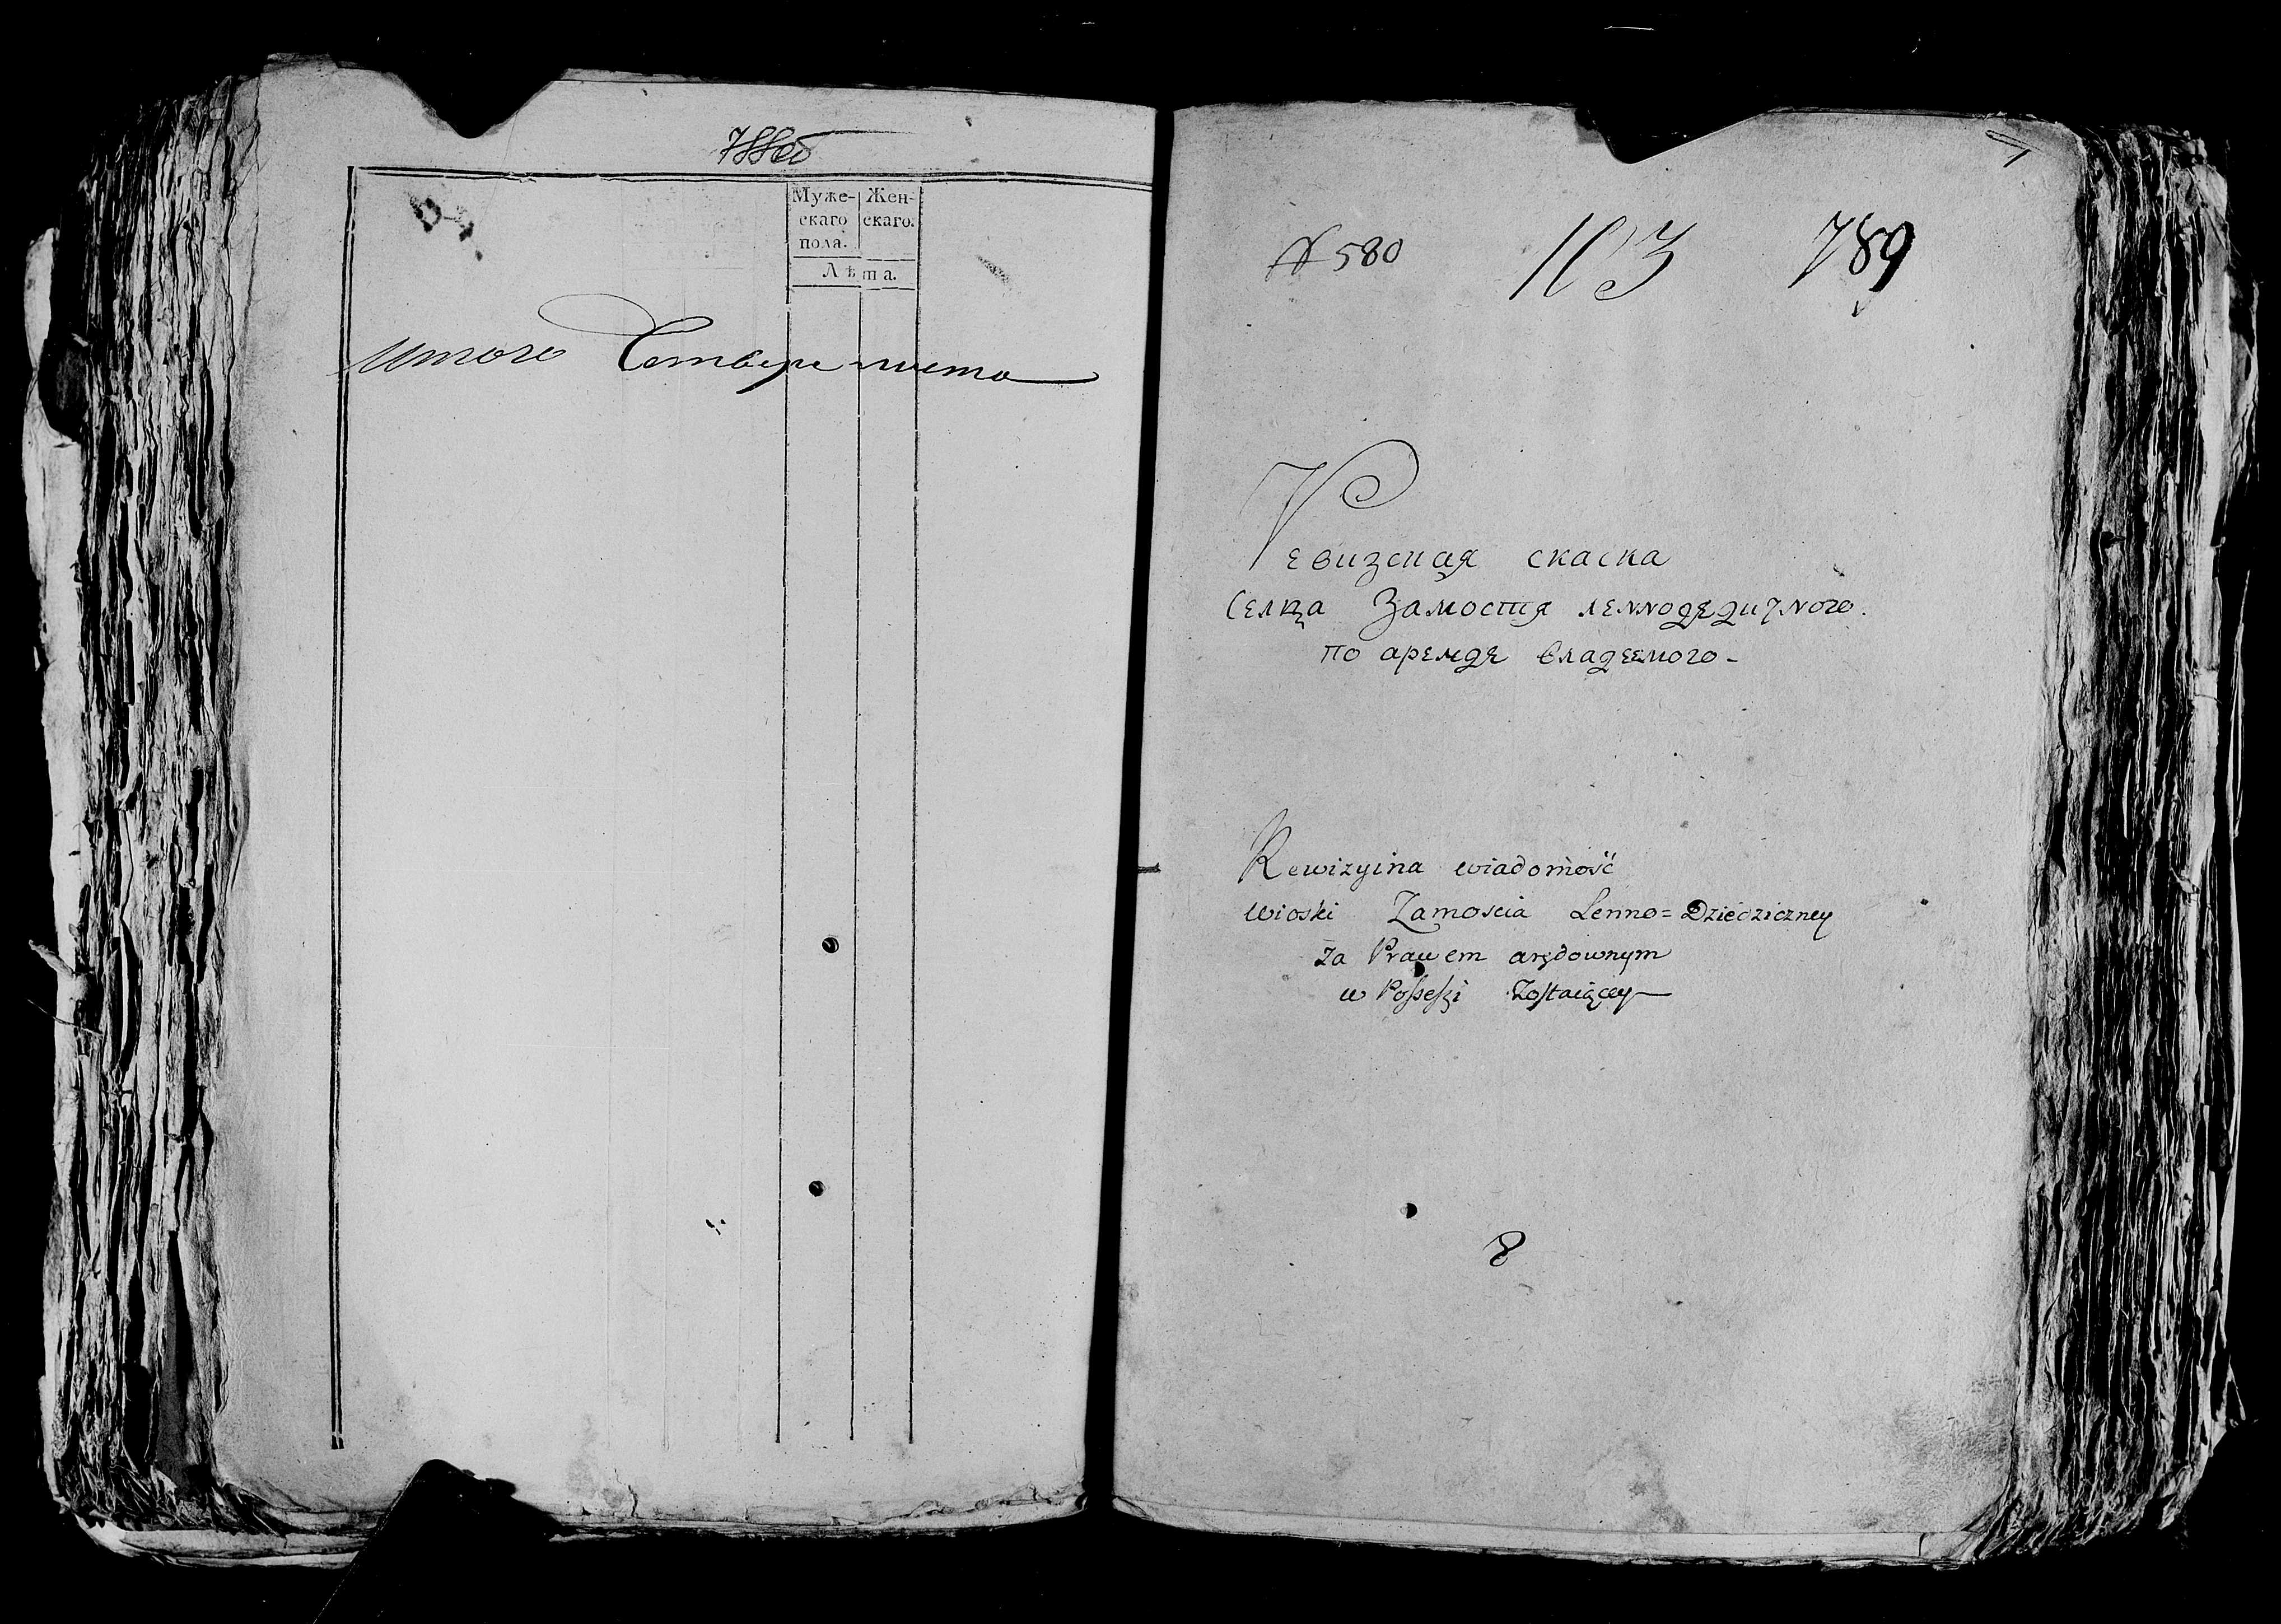 788об
Муже- Жен-
скаго скаго.
пола.
Лѣта.
Итого Четыре листа
№ 580 103 789
Ревизская скаска
Селца Замостя леннодѣдичного
по арендѣ владеемого -
Rewizyina wiadomość
wioski Zamoscia Lenno=Dziedziczney
za Prawem arędownym
w Possessyi Zostaiącey
8